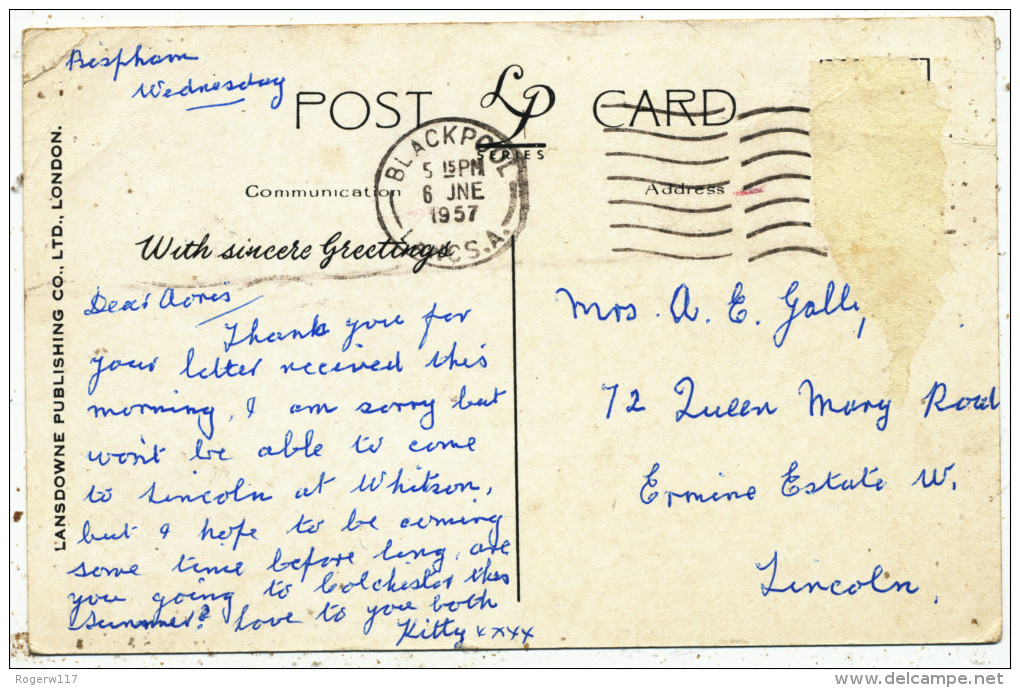 Bispham
Wednesday
POST CARD
LP
SERIES
BLACKPOOL
LANCS. A.
5 15 PM
6 JNE
1957
Communication
Address
With sincere Greetings
Dear
Thank you for
your letter received this
morning, I am sorry but
won't be able to come
to Lincoln at Whitson,
but I hope to be coming
some time before long, are
you going to Colchester this
Summer? love to you both
Kitty xxxx
Mrs. A. E. Galle,
72 Queen Mary Road
Ermine Estate W.
Lincoln,
LANSDOWNE PUBLISHING CO., LTD., LONDON.
Rogerw117
delcampe.net